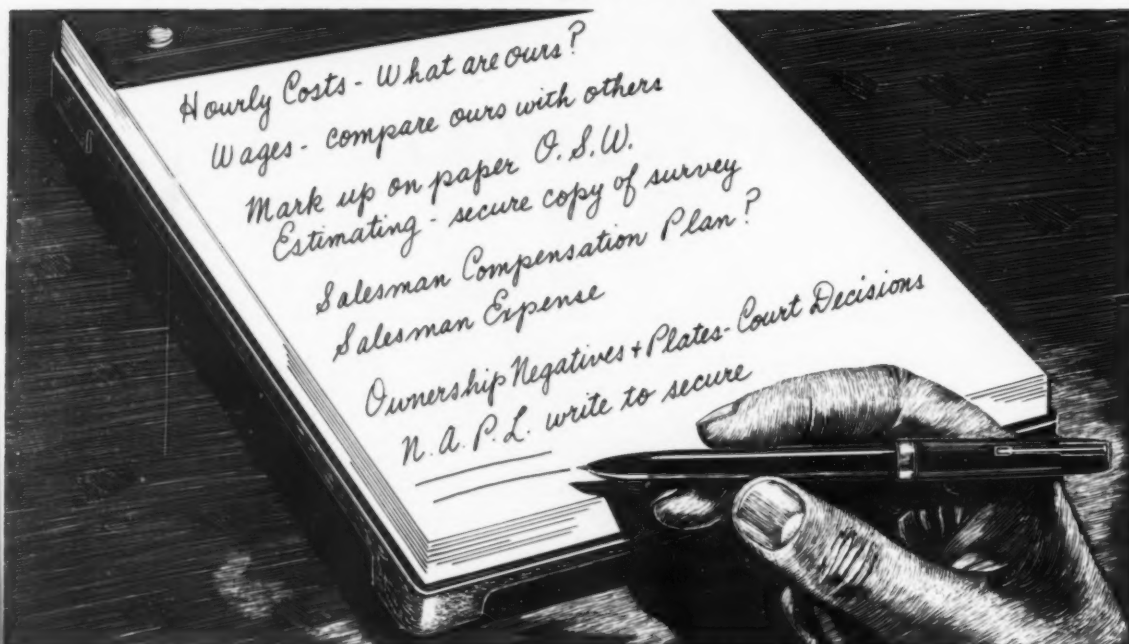 Hourly Costs - What are ours?
Wages - compare ours with others
Mark up on paper O.S.W.
Estimating - secure copy of survey
Salesman Compensation Plan?
Salesman Expense
Ownership Negatives + Plates - Court Decisions
N.A.P.L. write to secure